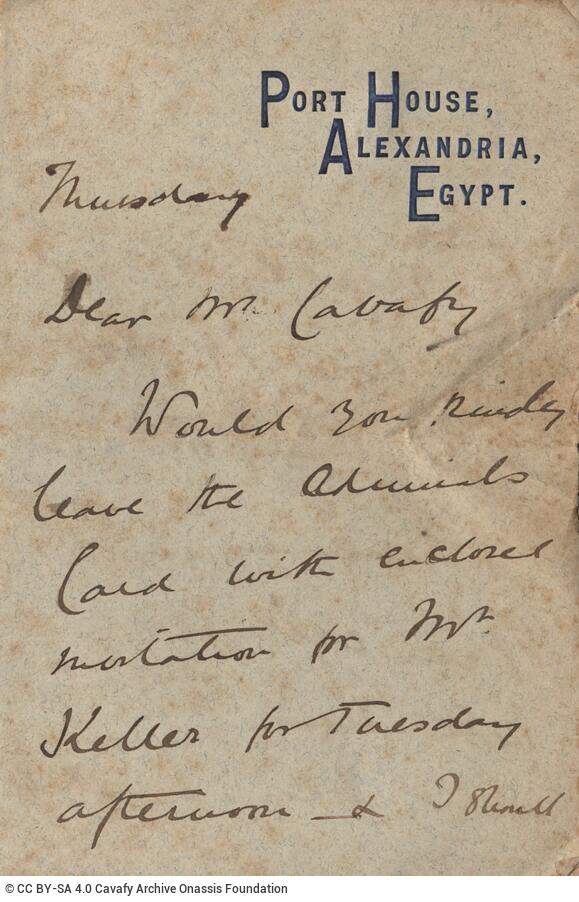 PORT HOUSE,
ALEXANDRIA,
EGYPT.
Thursday
Dear Mr. Cavafy
Would you kindly
leave the Admirals
Card with enclosed
invitation for Mr.
Keller for Tuesday
afternoon & I should
© CC BY-SA 4.0 Cavafy Archive Onassis Foundation